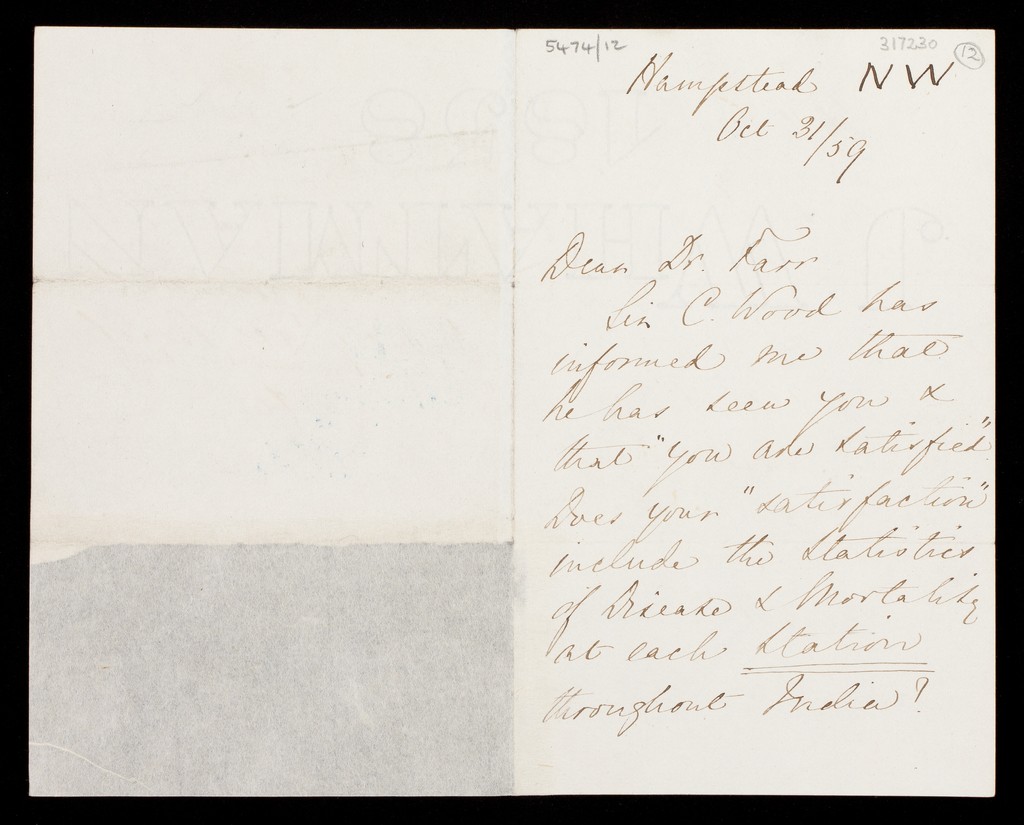 5474/12
317230
12
Hampstead NW
Oct 31/59
Dear Dr. Farr
Sir C. Wood has
informed me that
he has seen you &
that "you are satisfied".
Does your "satisfaction"
include the Statistics
of Disease & Mortality
at each Station
throughout India?